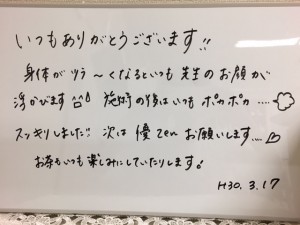 いつもありがとうございます!!
身体がツラ〜くなるといつも先生のお顔が
浮かびます^^! 施術の後はいつもポカポカ....
スッキリしました!! 次は優zenお願いします...♡
お茶もいつも楽しみにしていたりします!
H30.3.17